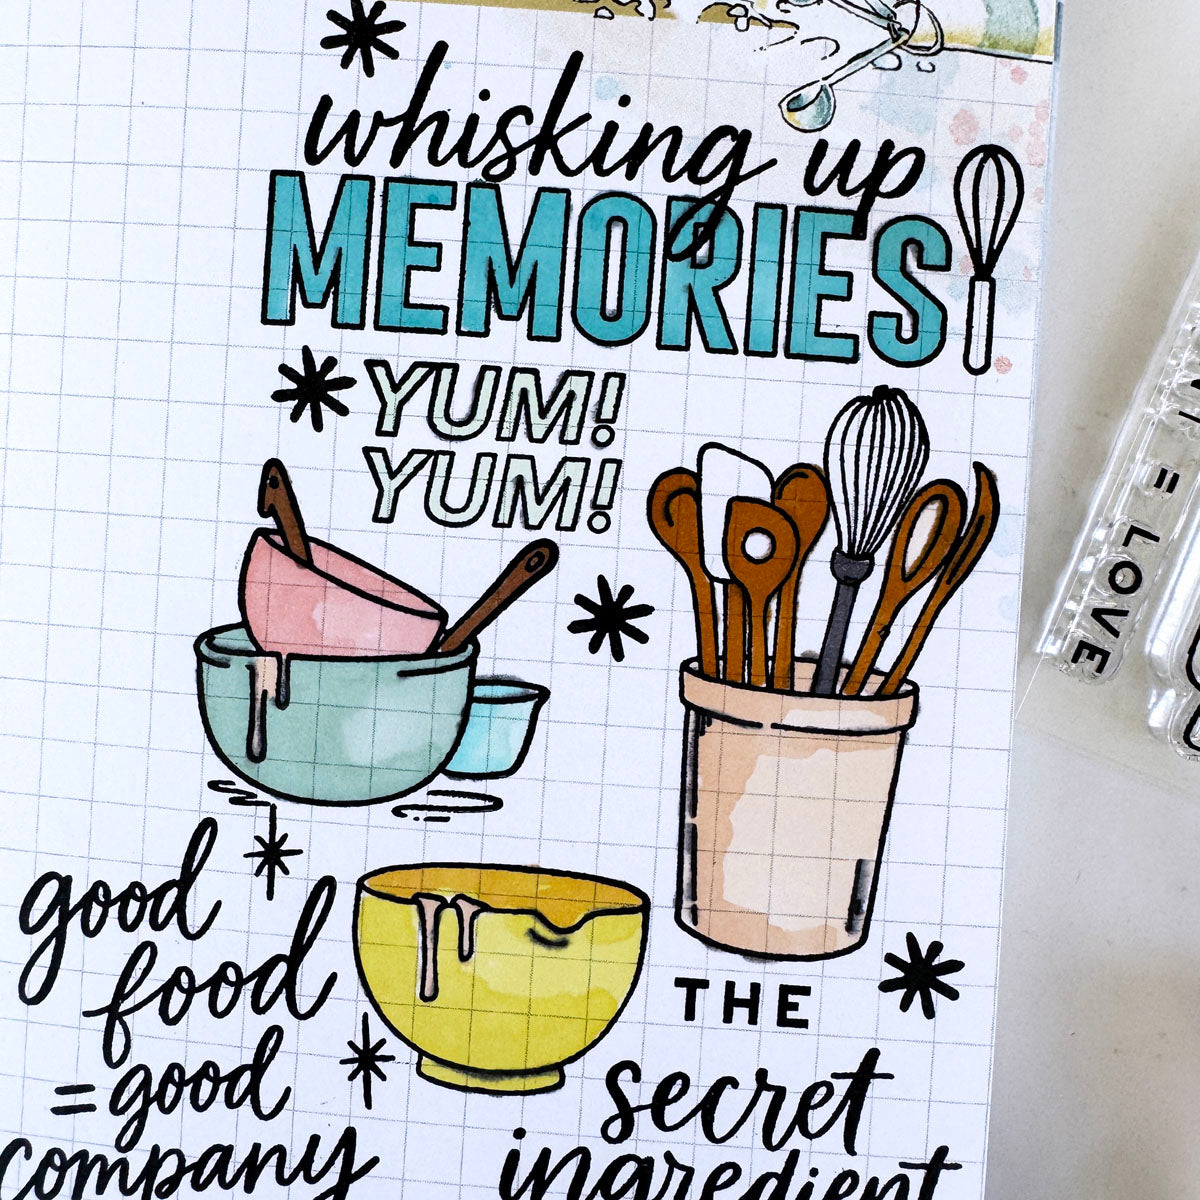 whisking up
MEMORIES
YUM!
YUM!
good
food
= good
company
THE
secret
ingredient
= LOVE